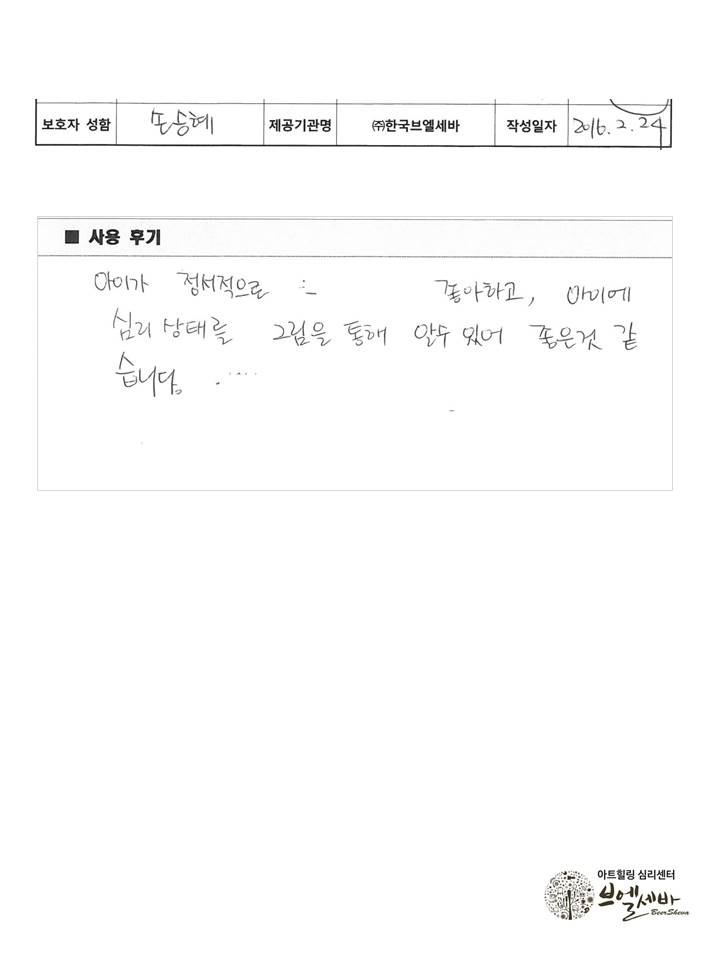 보호자 성함 손승혜 제공기관명 ㈜한국브엘세바 작성일자 2016. 2. 24
■ 사용 후기
아이가 정서적으로 좋아하고, 아이에
심리 상태를 그림을 통해 알수 있어 좋은것 같
습니다.
아트힐링 심리센터
브엘세바
BeerSheva